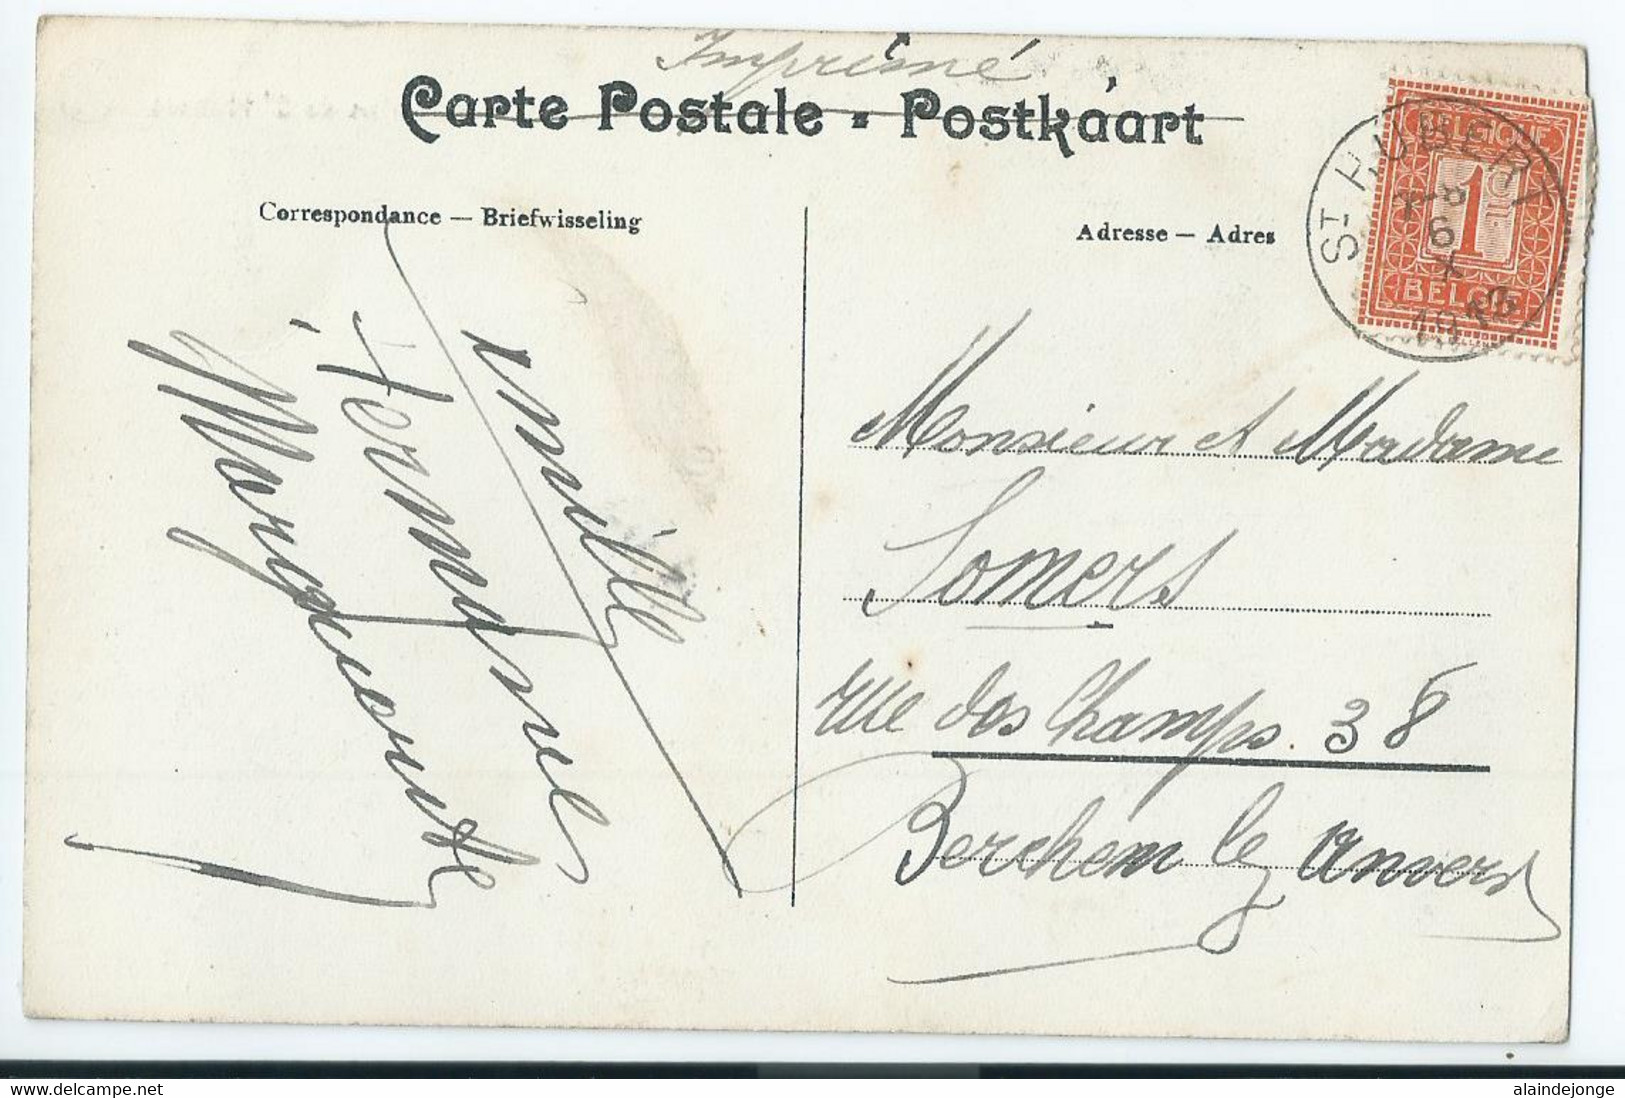 Imprimé
Carte Postale - Postkaart
Correspondance — Briefwisseling
Adresse — Adres
BELGIQUE
1
BELGIË
ST-HUBERT
7-8
6
X
1913
mille
Marquerette
Monsieur et Madame
Somers
rue des Champs. 38
Berchem lez Anvers
www.delcampe.net
alaindejonge